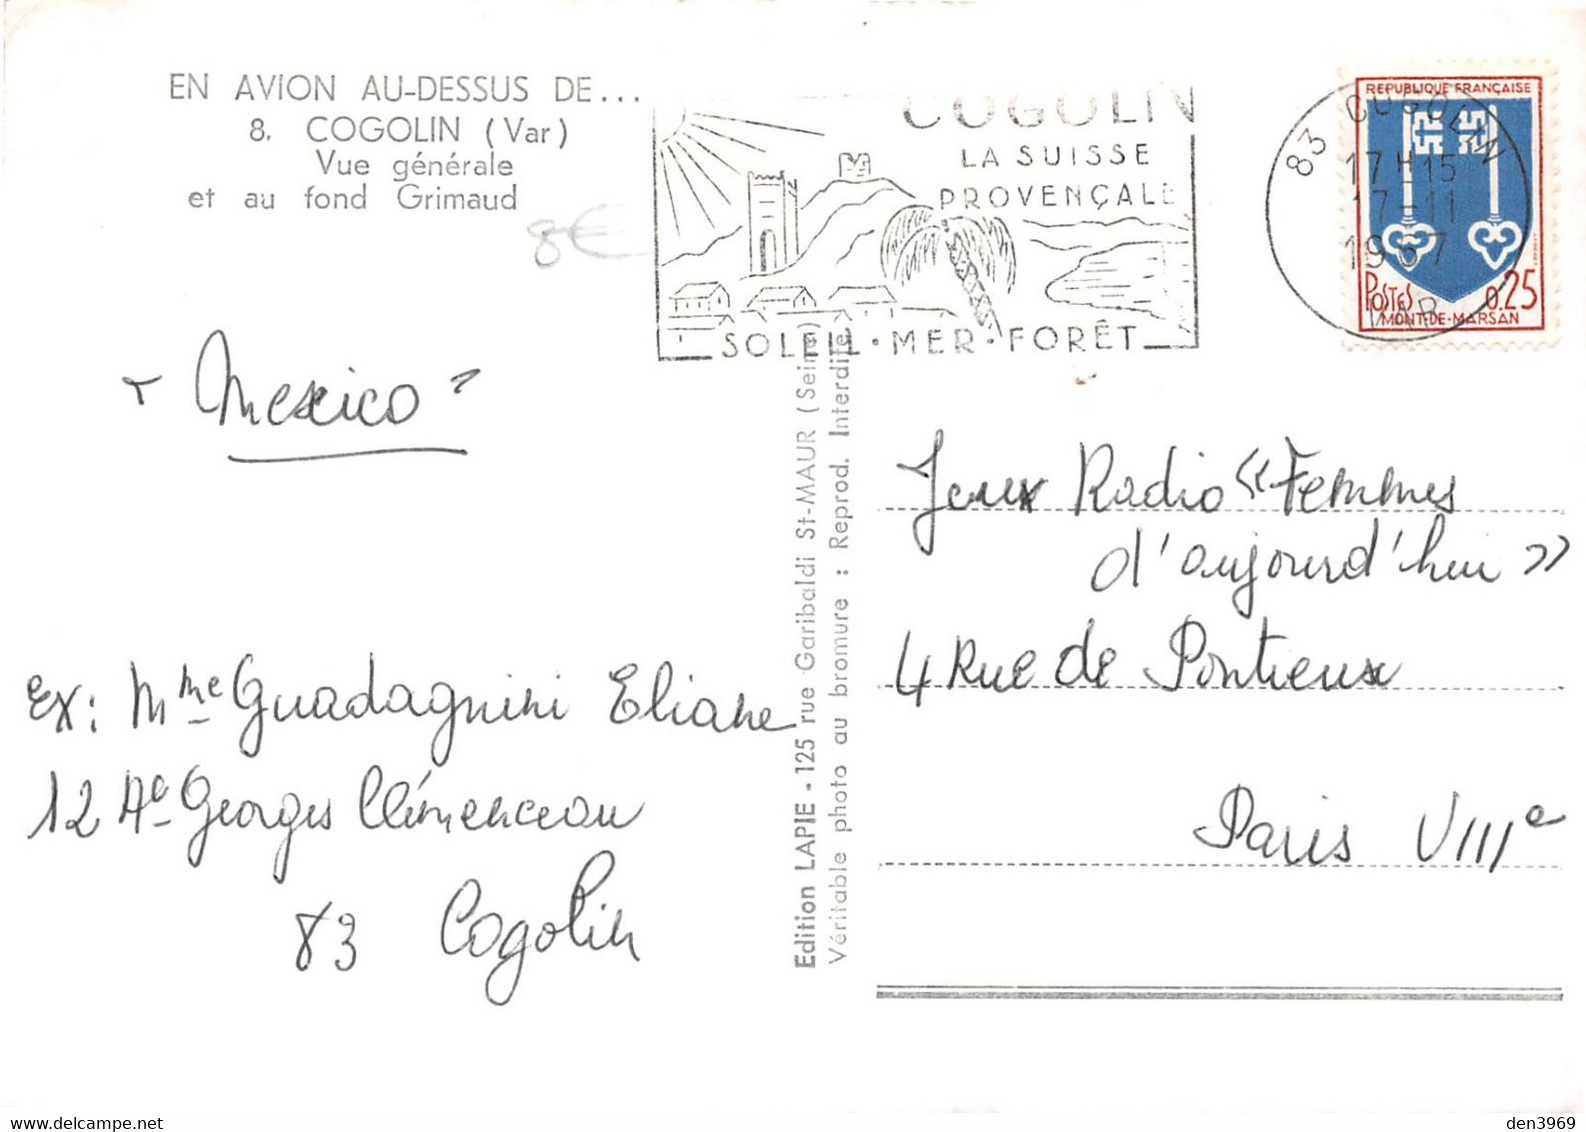 EN AVION AU-DESSUS DE...
8. COGOLIN (Var)
Vue générale
et au fond Grimaud
8€
COGOLIN
LA SUISSE
PROVENÇALE
SOLEIL • MER • FORÊT
83 COGOLIN
17H15
17-11
1967
VAR
REPUBLIQUE FRANÇAISE
POSTES
0.25
MONT-DE-MARSAN
"Mexico"
Ex: Mme Guadagnini Eliane
12 Ae Georges Clémenceau
83 Cogolin
Edition LAPIE - 125 rue Garibaldi St-MAUR (Seine)
Véritable photo au bromure : Reprod. Interdite
Jeux Radio «Femmes
d'aujourd'hui»
4 Rue de Pontieux
Paris VIIIe
den3969